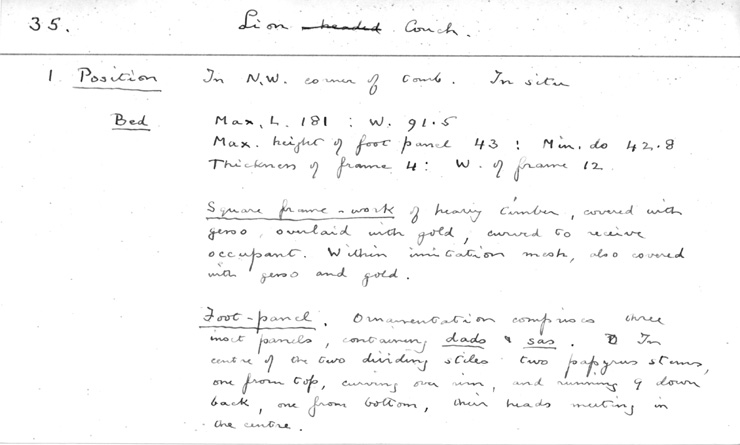 35. Lion headed Couch.
1 Position In N.W. corner of tomb. In situ
Bed Max. L. 181 : W. 91.5
Max. height of foot panel 43 : Min. do 42.8
Thickness of frame 4 : W. of frame 12
Square frame-work of heavy timber, covered with
gesso, overlaid with gold, curved to receive
occupant. Within imitation mesh, also covered
with gesso and gold.
Foot-panel. Ornamentation comprises three
inset panels, containing dads & sas. In
centre of the two dividing stiles two papyrus stems,
one from top, curving over rim, and running down
back, one from bottom, their heads meeting in
the centre.